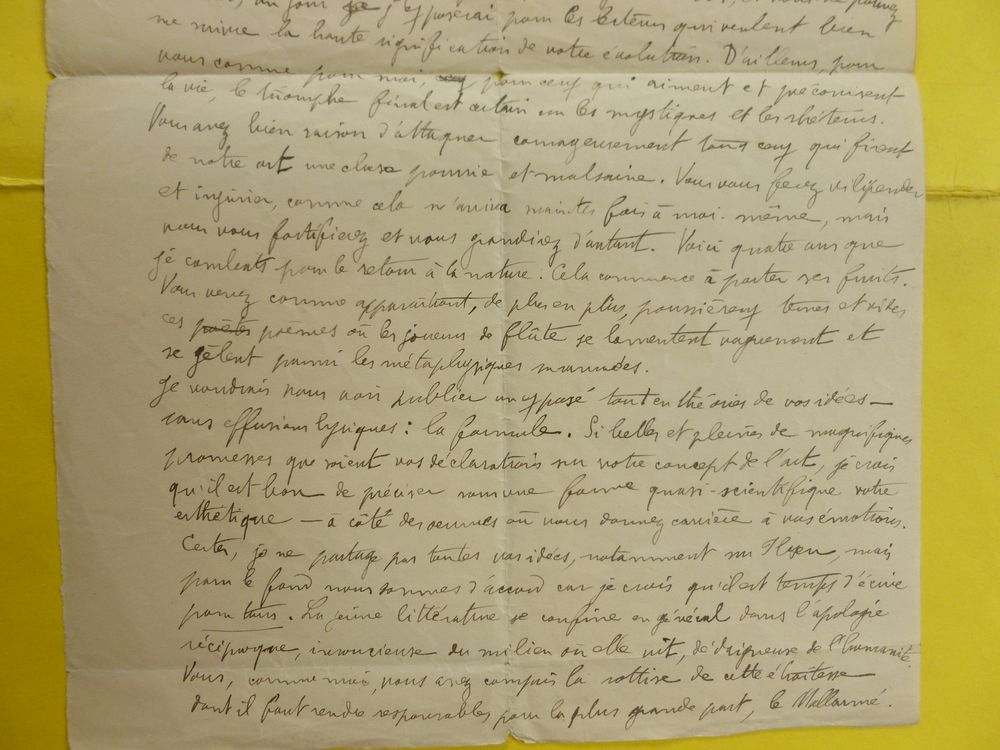 un jour je j'exposerai pour les lecteurs qui veulent bien
me suivre la haute signification de votre évolution. D'ailleurs, pour
vous comme pour moi, pour ceux qui aiment et préconisent
la vie, le triomphe final est certain sur les mystiques et les rhéteurs.
Vous avez bien raison d'attaquer courageusement tous ceux qui firent
de notre art une chose pourrie et malsaine. Vous vous ferez vilipender
et injurier, comme cela m'arriva maintes fois à moi-même, mais
vous vous fortifierez et vous grandirez d'autant. Voici quatre ans que
je combats pour le retour à la nature. Cela commence à porter ses fruits.
Vous verrez comme apparaîtront, de plus en plus, poussiéreux ternes et vides
ces poètes poèmes où les joueurs de flûte se lamentent vaguement et
se gèlent parmi les métaphysiques surannées.
Je voudrais vous voir publier un exposé tout en théories de vos idées —
sans effusions lyriques : la formule. Si belles et pleines de magnifiques
promesses que soient vos déclarations sur votre concept de l'art, je crois
qu'il est bon de préciser sous une forme quasi-scientifique votre
esthétique — à côté des oeuvres où vous donnez carrière à vos émotions.
Certes, je ne partage pas toutes vos idées, notamment sur mais
pour le fond nous sommes d'accord car je crois qu'il est temps d'écrire
pour tous. La jeune littérature se confine en général dans l'apologie
réciproque, insoucieuse du milieu où elle vit, dédaigneuse de l'humanité.
Vous, comme moi, vous avez compris la sottise de cette étroitesse
dont il faut rendre responsables pour la plus grande part, le Mallarmé.